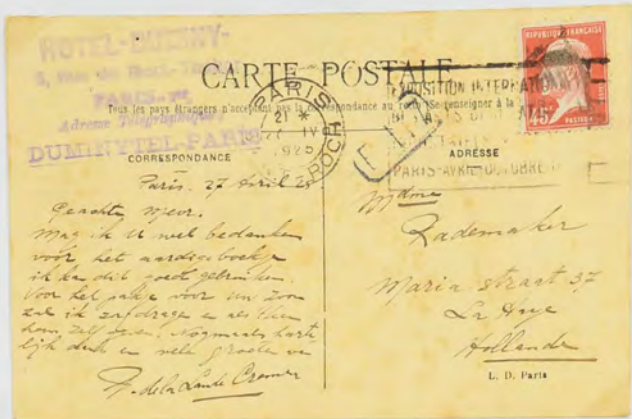 HOTEL-DUMINY-
PARIS-1er
Adresse Télégraphique:
DUMINYTEL-PARIS
CARTE POSTALE
Tous les pays étrangers n'acceptent pas la correspondance au recto (Se renseigner à la
PARIS
21 *
IV
1925
R. ST ROCH
EXPOSITION INTERNATIONALE
PARIS-AVRIL-OCTOBRE
RÉPUBLIQUE FRANÇAISE
45c
POSTES
CORRESPONDANCE
ADRESSE
Paris. 27 April 25
Geachte Mevr.
Mag ik U wel bedanken
voor het aardige boekje
ik kan dit goed gebruiken.
Voor het pakje voor Uw Zoon
zal ik zorg dragen en als
hem zelf geven. Nogmaals harte
lijk dank en vele groeten van
F. de la Lande Cremer
Mdme
Rademaker
Maria straat 37
La Haye
Hollande
L. D. Paris